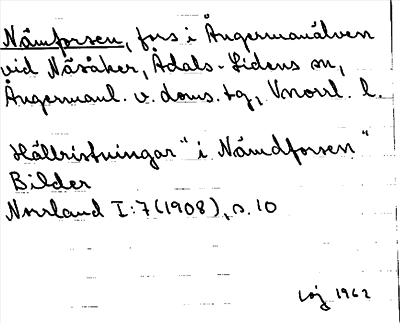 Nämforsen, fors i Ångermanälven
vid Näsåker, Ådals-Lidens sn,
Ångermanl. v. doms. tg, Vnorrl. l.
Hällristningar" i Nämdforsen"
Bilder
Norrland I:7 (1908), s. 10
1962